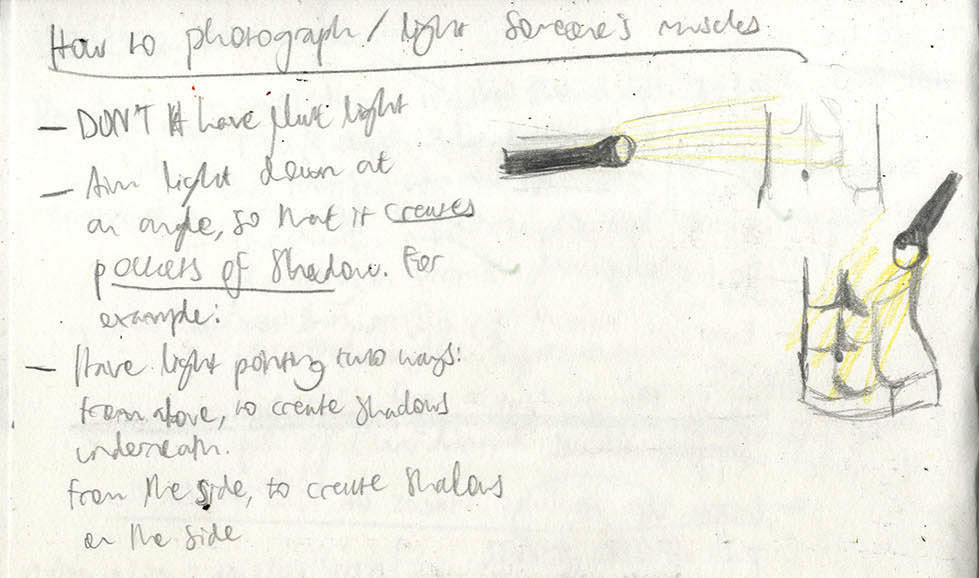 How to photograph / light someone's muscles
- DON'T have flat light
- Aim light down at
an angle, so that it creates
pockets of shadow. For
example:
- Have light pointing two ways:
from above, to create shadows
underneath.
from the side, to create shadows
on the side